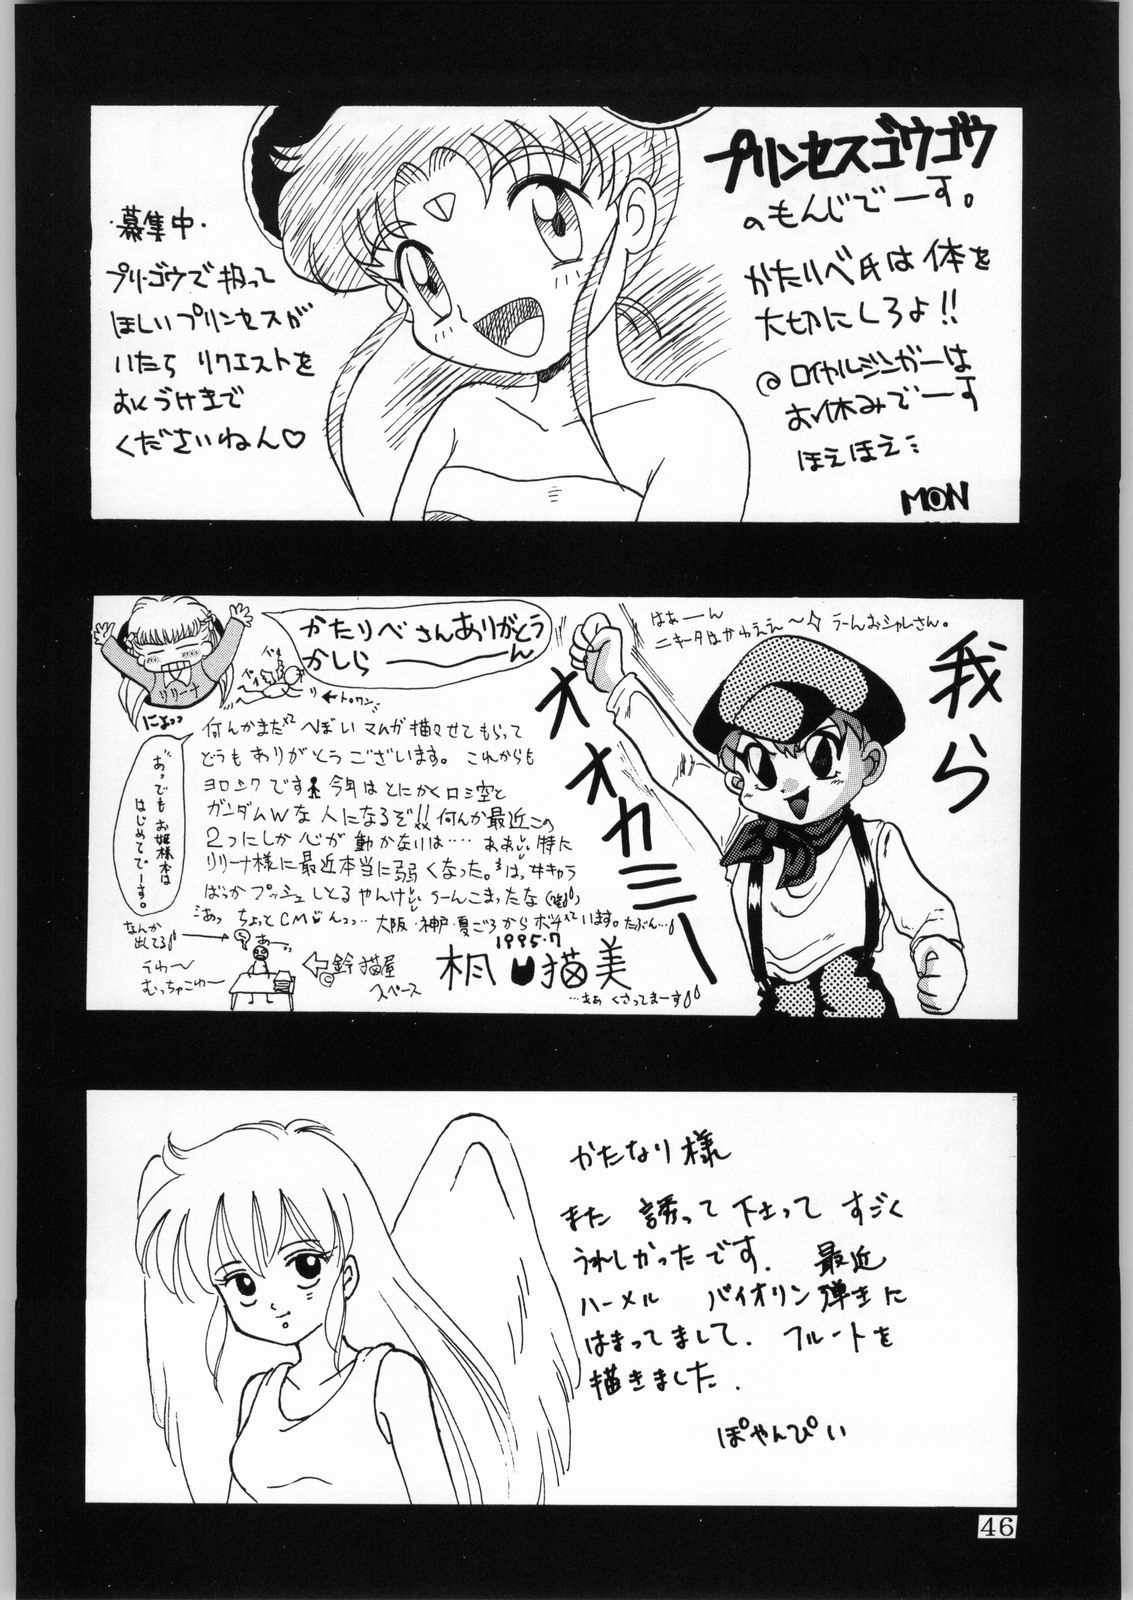 プリンセスゴウゴウ
のもんじでーす。
かたりべ氏は体を
大切にしろよ!!
ロイヤルジンガーは
お休みでーす
ほえほえ
MON
・募集中・
プリ・ゴウで扱って
ほしいプリンセスが
いたら リクエストを
おくづけまで
くださいねん♡
我ら
オオカミー
はぁーん
ニキータはかわええ〜 うーんおシャレさん。
かたりべさんありがとう
かしらーーーん
リリーナ
←トロワン
何んかまた へぼいマンガ描かせてもらって
どうもありがとうございます。これからも
ヨロシクです 今年はとにかくロミ空と
ガンダムWな人になるぞ!! 何んか最近この
2つにしか心が動かなりは…… 特に
リリーナ様に最近本当に弱くなった。 は、女キャラ
ばっか プッシュしとるやんけ うーんこまったな
あっ ちょっとCM 大阪・神戸・夏ごろから います。たぶん…
おっでも お姫様本は
はじめてでーす。
なんか
出てる
うわ〜
むっちゃこわ〜
あー
鈴描屋
スペース
1995.7
猫美
かたなり様
また 誘って下さって すごく
うれしかったです. 最近
ハーメル バイオリン弾きに
はまってまして. フルートを
描きました.
ぽやんぴい
46